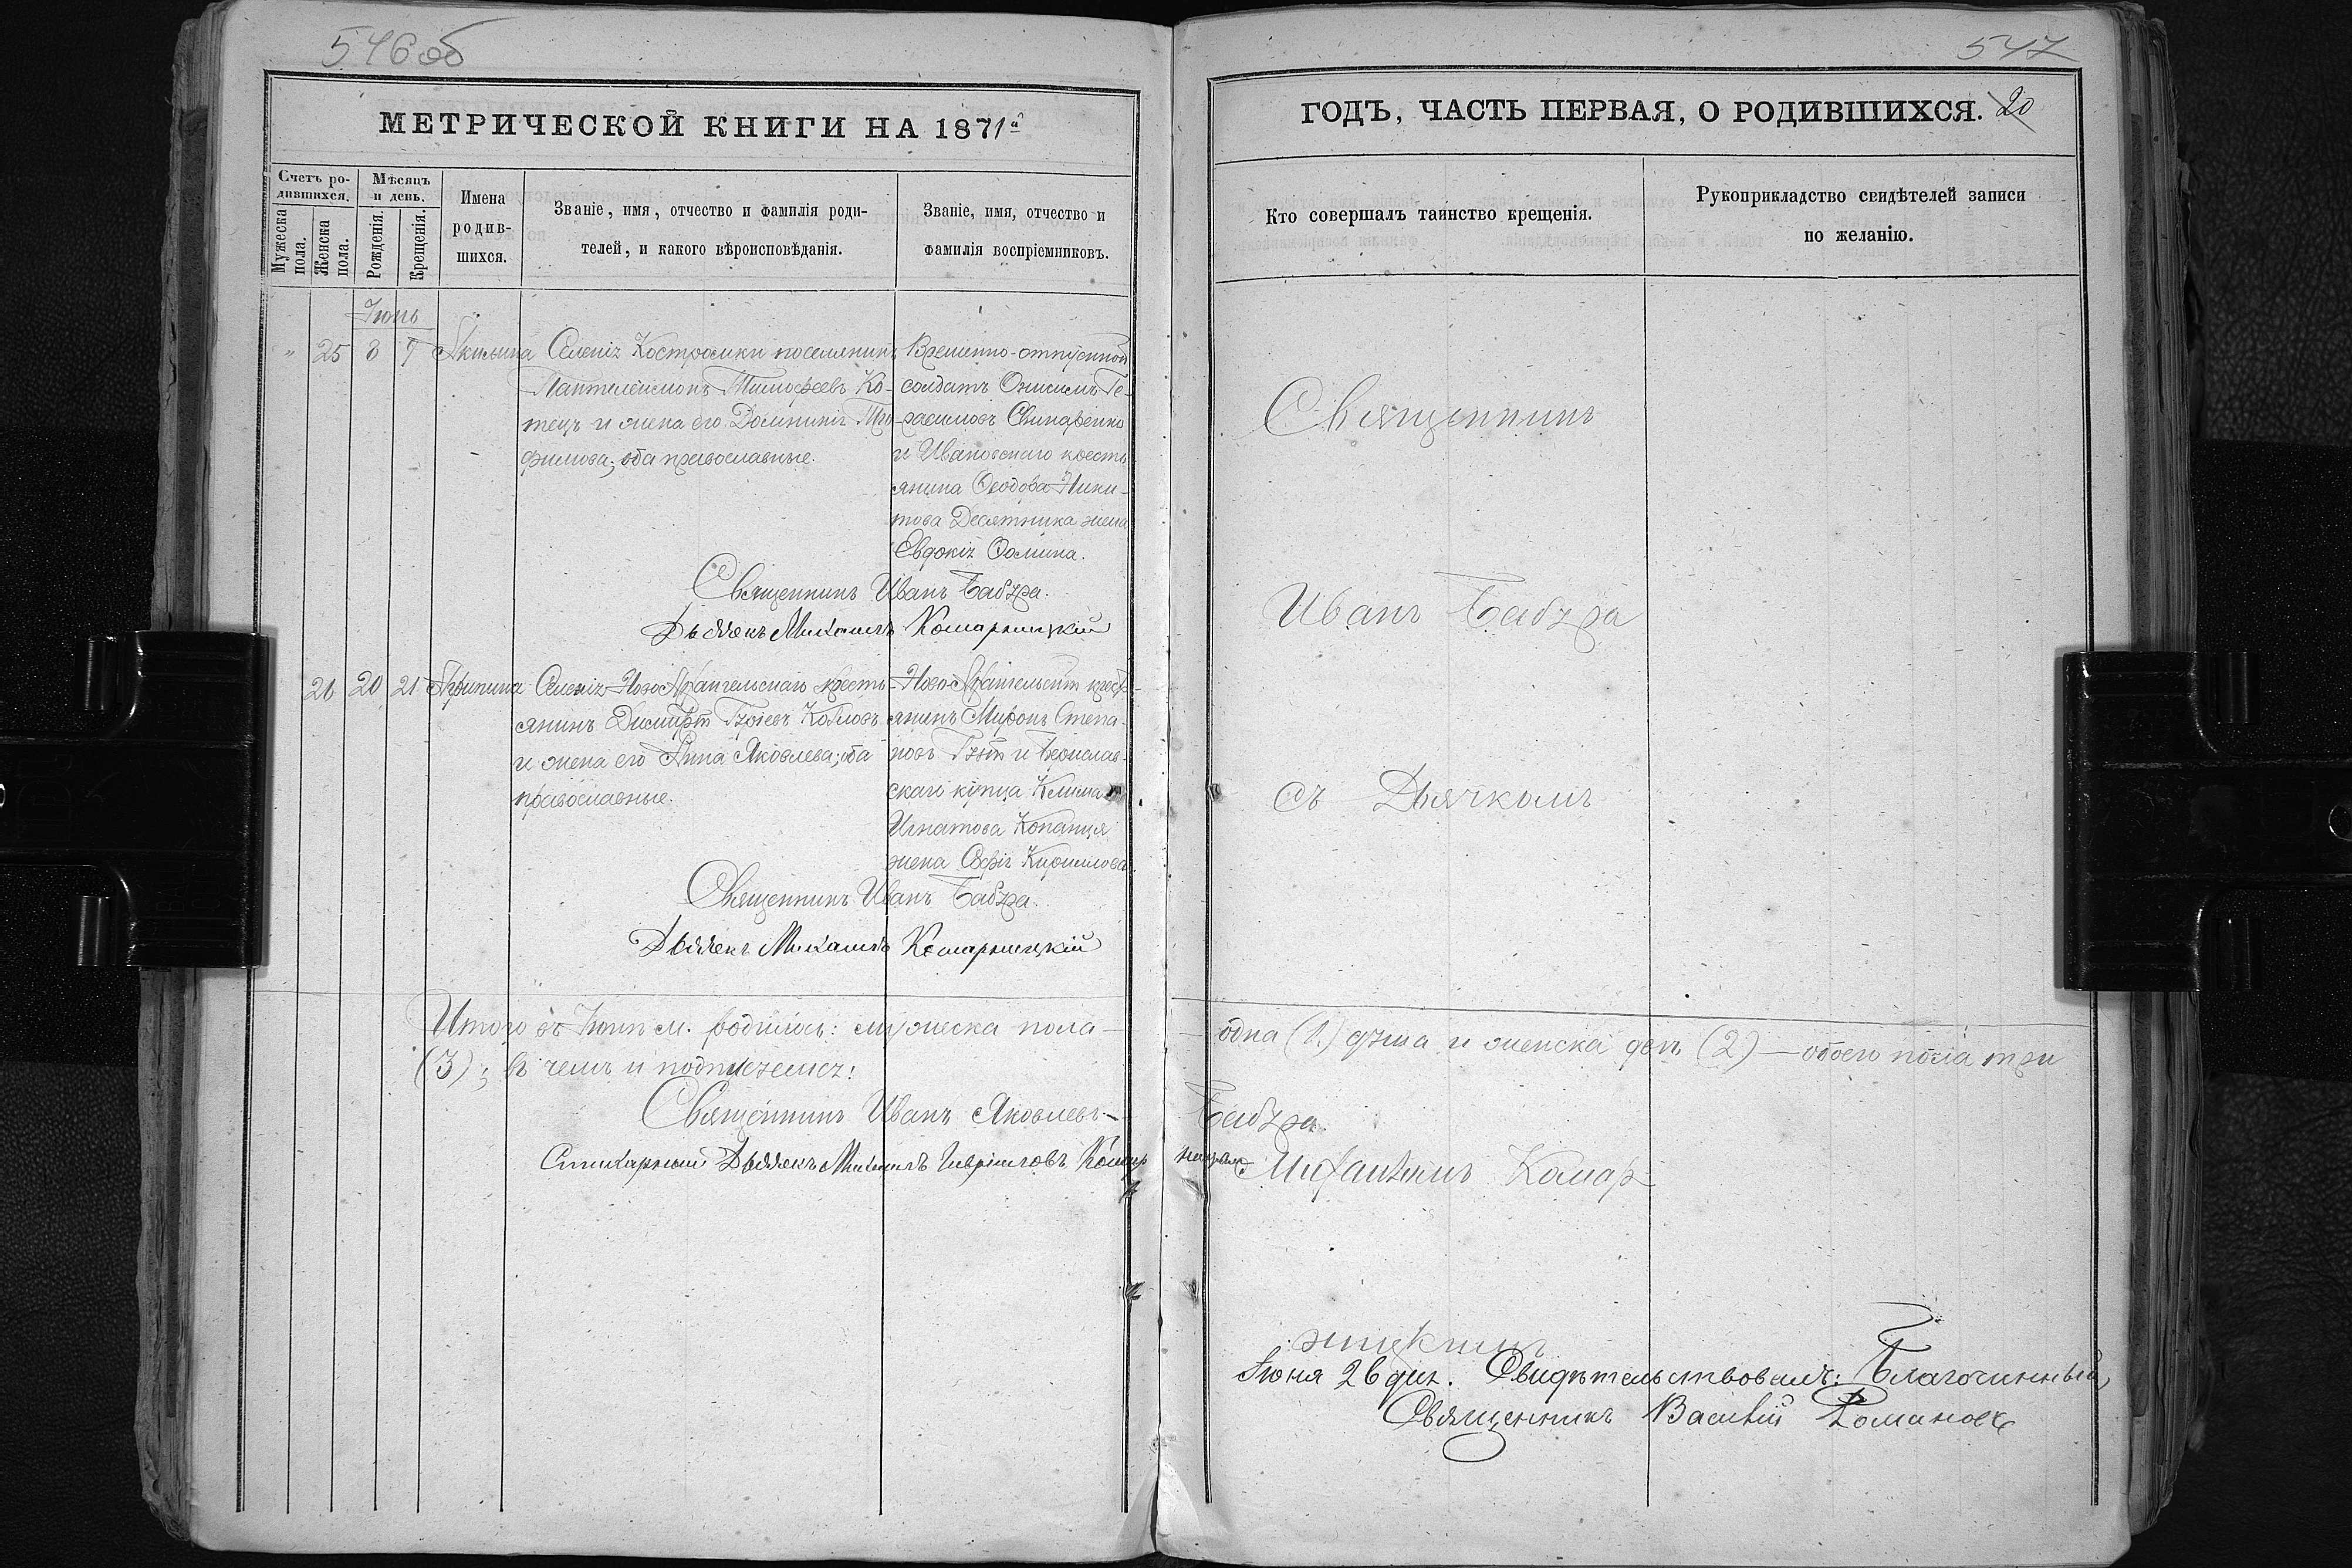 546 об
МЕТРИЧЕСКОЙ КНИГИ НА 1871й
Счетъ ро-
дившихся.
Мужеска
пола.
Женска
пола.
Мѣсяцъ
и день.
Рожденія.
Крещенія.
Имена
родив-
шихся.
Званіе, имя, отчество и фамилія роди-
телей, и какого вѣроисповѣданія.
Званіе, имя, отчество и
фамилія воспріемниковъ.
Іюнь
25 8 9 Акилина
Селенія Костромки поселянинъ
Пантелеимонъ Тимофеевъ Ко-
тецъ и жена его Домникія Тро-
фимова; оба православные.
Временно-отпускной
солдатъ Онисимъ Ге-
расимовъ Свинаренко
и Ивановскаго кресть
янина Ѳеодора Ники-
това Десятника жена
Евдокія Ѳомина.
Священникъ Иванъ Бабура.
Дьячекъ Михаилъ Комарницкій
26 20 21 Агрипина
Селенія Ново Архангельскаго кресть-
янинъ Димитрій Козловъ
и жена его Анна Яковлева; оба
православные.
Ново-Архангельскій крест-
янинъ Миронъ Степа-
новъ и Бериславс-
скаго купца Климы
Игнатова Копанця
жена Софія Кирилова.
Священникъ Иванъ Бабура.
Дьячекъ Михаилъ Комарницкій
Итого въ Іюнѣ м. родилось: мужеска пола —
(3); въ чемъ и подписуемся:
Священникъ Иванъ Яковлевъ
Стихарный Дьячекъ Михаилъ Гавріиловъ Комар
547
ГОДЪ, ЧАСТЬ ПЕРВАЯ, О РОДИВШИХСЯ. 20
Кто совершалъ таинство крещенія.
Рукоприкладство свидѣтелей записи
по желанію.
Священникъ
Иванъ Бабура
съ Дьячкомъ
одна (1.) душа и женска двѣ (2) — обоего пола три
Бабура.
ницкій
Михаиломъ Комар-
ницкимъ
Іюня 26 дня. Свидѣтельствовалъ: Благочинный,
Священникъ Василій Романовъ